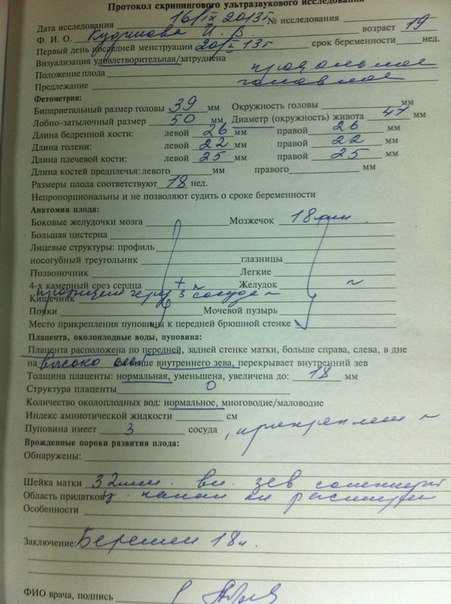 Протокол скринингового ультразвукового исследования
Дата исследования 16/IX 2013г № исследования
Ф. И. О. возраст 19
Первый день последней менструации 13г срок беременности нед.
Визуализация удовлетворительная/затруднена
Положение плода продольное
Предлежание головное
Фетометрия:
Бипариетальный размер головы 39 мм Окружность головы мм
Лобно-затылочный размер 50 мм Диаметр (окружность) живота 47 мм
Длина бедренной кости: левой 26 мм правой 26 мм
Длина голени: левой 22 мм правой 22 мм
Длина плечевой кости: левой 25 мм правой 25 мм
Длина костей предплечья: левого мм правого мм
Размеры плода соответствуют 18 нед.
Непропорциональны и не позволяют судить о сроке беременности
Анатомия плода:
Боковые желудочки мозга Мозжечок 18мм
Большая цистерна
Лицевые структуры: профиль
носогубный треугольник глазницы
Позвоночник Легкие
4-х камерный срез сердца + Желудок
3 сосуда
Кишечник
Почки Мочевой пузырь
Место прикрепления пуповины к передней брюшной стенке
Плацента, околоплодные воды, пуповина:
Плацента расположена по передней, задней стенке матки, больше справа, слева, в дне
на высоко выше внутреннего зева, перекрывает внутренний зев
Толщина плаценты: нормальная, уменьшена, увеличена до: 18 мм
Структура плаценты 0
Количество околоплодных вод: нормальное, многоводие/маловодие
Индекс амниотической жидкости см
Пуповина имеет 3 сосуда,
Врожденные пороки развития плода:
Обнаружены:
Шейка матки 32мм. вн. зев сомкнут
Область придатков
Особенности
Заключение: Беремен 18н.
ФИО врача, подпись